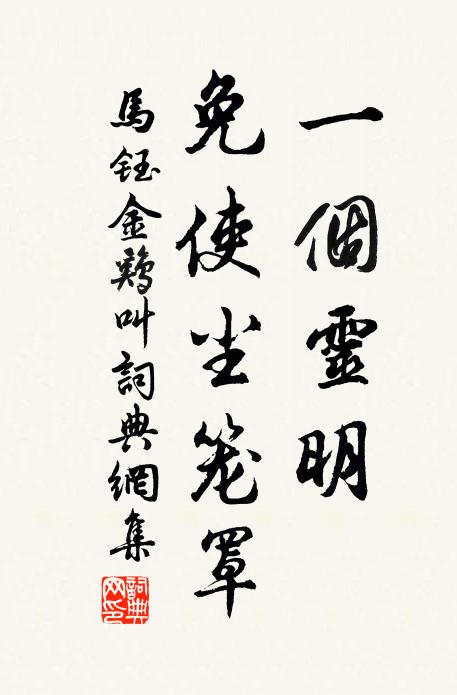 一個靈明
免使尘笼罩
馬鈺金鷄叫詞典網集
詞典网印